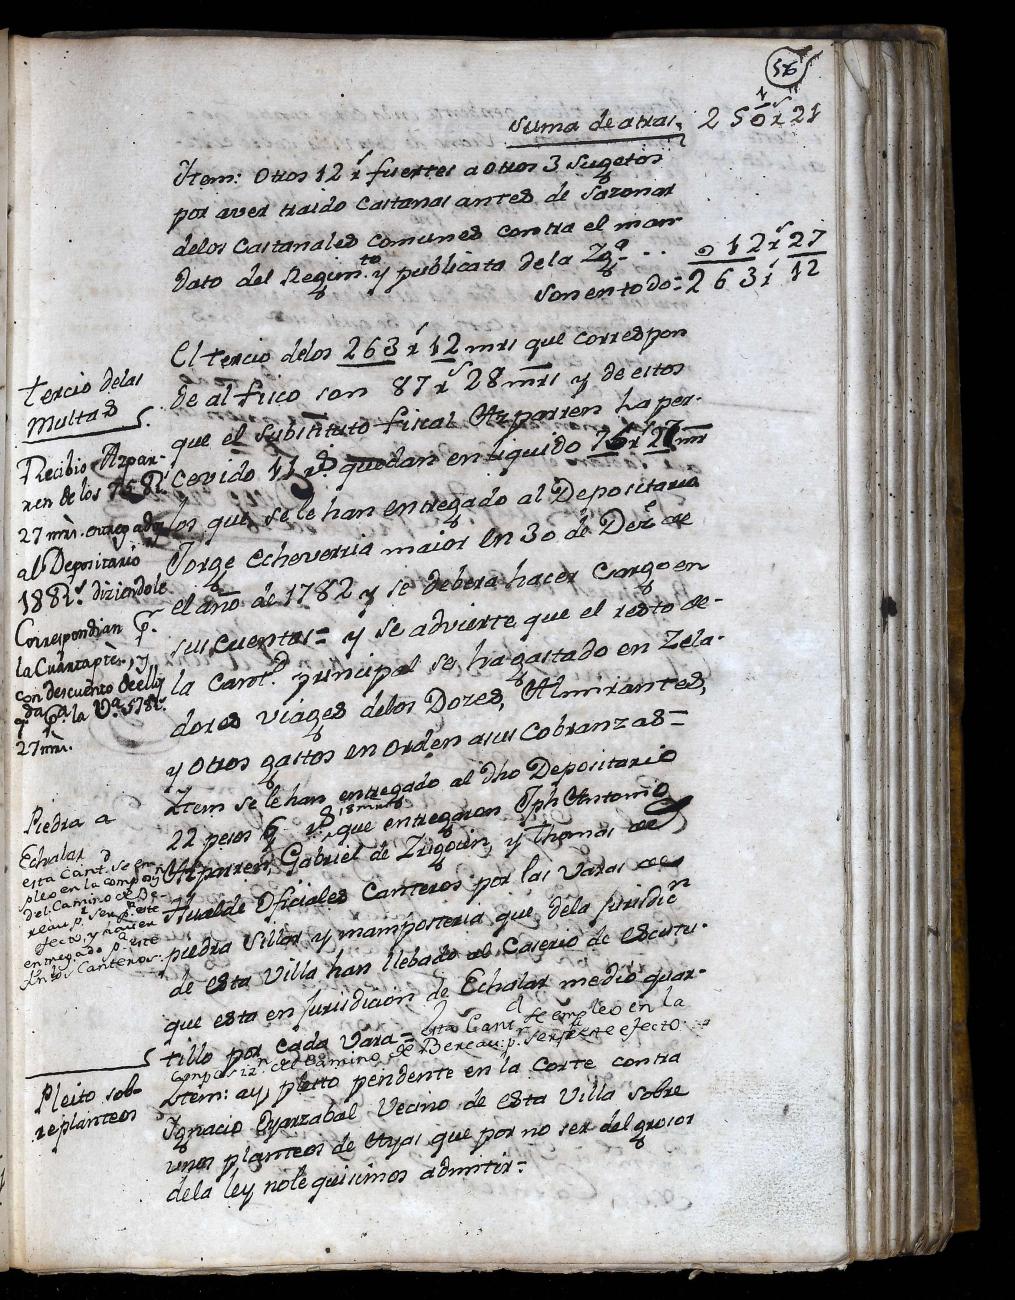 56
Suma de atras. 250 rs 21
Item: otros 12 rs fuertes a otros 3 sugetos
por aver traido castanas antes de sazonar
delos castanales comunes contra el man
dato del Regim.to y publicata de la Zg.a ... 012 rs 27
son en todo = 263 rs 12
tercio delas
Multas
El tercio delos 263 rs 12 mrs que correspon
de al fisco son 87 rs 28 mrs y de estos
que el substituto fiscal Azparren ha per-
cevido 11 rs quedan en liquido 76 rs 27 mrs
los que se le han entregado al Depositario
Jorge Echeverria maior en 30 de Dez.e de
el año de 1782 y se debera hacer cargo en
sus cuentas = y se advierte que el resto de-
la Cant.d principal se ha gastado en Zela-
dores viages delos Dozes, Almirantes,
y otros gastos en orden a sus cobranzas =
Recibio Azpar-
ren de los
27 mrs. entregados
al Depositario
18 Rs. diziendole
Correspondian
la Cuarta pte. y
con descuento de ellos
27 mrs.
Item se le han entregado al dho Depositario
22 pesos 6 rs 18 mrs que entregaron Jph Antonio
Azparren, Gabriel de Zugoin, y Thomas de
Ituralde Oficiales Canteros por las Varas de
piedra sillar y mamposteria que dela jurisdi.on
de esta Villa han llebado al Caserio de
que esta en jurisdicion de Echalar medio quar-
tillo por cada vara = esta Cant.d se empleo en la
Composiz.n del Camino de Bereau: p.r ser p.a este efecto.
Piedra a
Echalar
esta Cant.d se em-
pleo en la composiz.n
del Camino de Be-
reau p.r ser p.a este
efecto, y haver
entregado p.a este
fin los Canteros.
Pleito sob-
re planteos
Item: ay pleito pendente en la Corte contra
Ignacio Oyarzabal Vecino de esta Villa sobre
unos planteos de Ayas que por no ser del grosor
dela ley no le quisimos admitir =